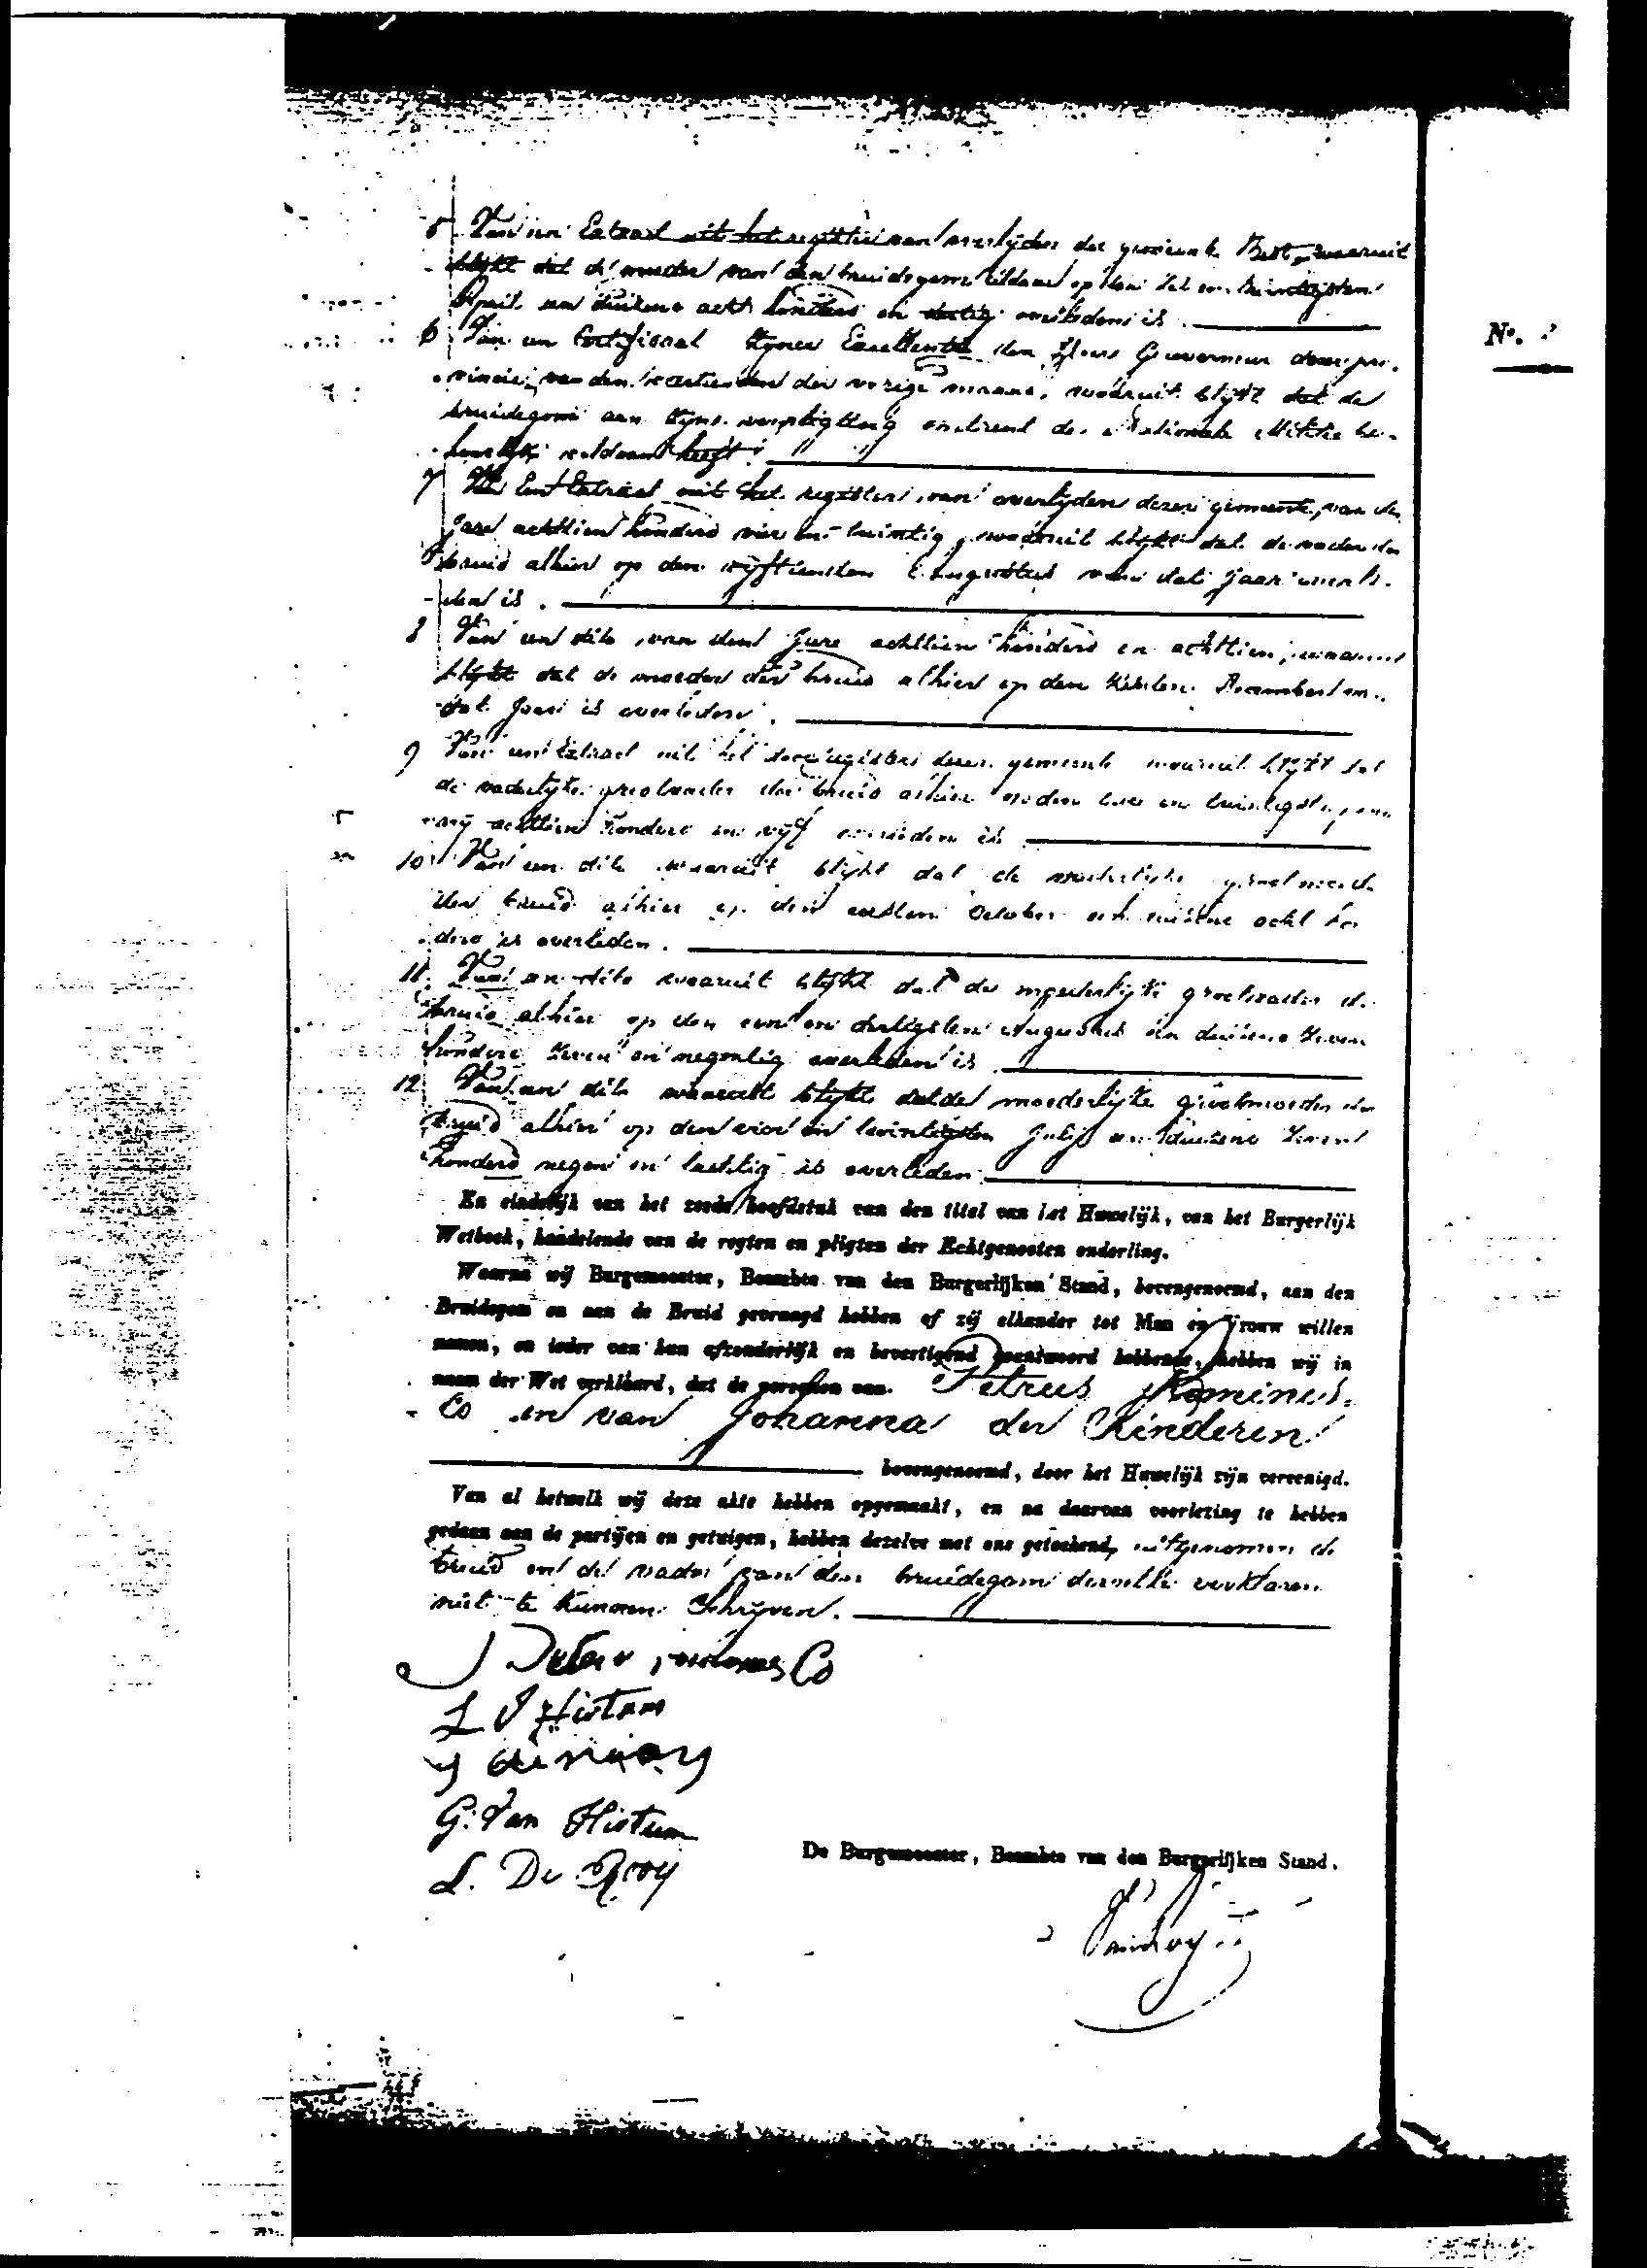 5 Van een Extract uit het register van overlijden der gemeente Best, waaruit
blijkt dat de moeder van den bruidegom aldaar op den
April een duizend acht honderd en dertig overleden is.
6 Van een Certificaat Zyner Excellentie den Heer Gouverneur dezer pro-
vincie, van den veertienden der vorige maand, waaruit blijkt dat de
bruidegom aan zyne verpligting omtrent de Nationale Militie be-
hoorlijk voldaan heeft.
7 Een Extract uit het register van overlijden dezer gemeente, van den
Jare achttien honderd vier en twintig, waaruit blijkt dat de vader der
bruid alhier op den vijftienden Augustus van dat jaar overle-
den is.
8 Van een dito van den Jare achttien honderd en achttien, waaruit
blijkt dat de moeder der bruid alhier op den December van
dat Jaar is overleden.
9 Van een Extract uit het doodregister dezer gemeente waaruit blijkt dat
de vaderlijke grootvader der bruid alhier op den twee en twintigste janu-
arij achttien honderd en vijf overleden is
10 Van een dito waaruit blijkt dat de vaderlijke grootmoeder
der bruid alhier op den October een duizend acht hon-
derd is overleden.
11. Van een dito waaruit blijkt dat de moederlijke grootvader der
bruid alhier op den een en dertigsten Augustus een duizend zeven
honderd zeven en negentig overleden is
12 Van een dito waaruit blijkt dat de moederlijke grootmoeder der
bruid alhier op den vier en twintigsten Julij een duizend zeven
honderd negen en tachtig is overleden.
En eindelijk van het zesde hoofdstuk van den titel van het Huwelijk, van het Burgerlijk
Wetboek, handelende van de regten en pligten der Echtgenooten onderling.
Waarna wij Burgemeester, Beambte van den Burgerlijken Stand, bovengenoemd, aan den
Bruidegom en aan de Bruid gevraagd hebben of zij elkander tot Man en Vrouw willen
nemen, en ieder van hun afzonderlijk en bevestigend geantwoord hebbende, hebben wij in
naam der Wet verklaard, dat de personen van Petrus
Co en van Johanna der Kinderen
bovengenoemd, door het Huwelijk zijn vereenigd.
Van al hetwelk wij deze akte hebben opgemaakt, en na daarvan voorlezing te hebben
gedaan aan de partijen en getuigen, hebben dezelve met ons geteekend, uitgenomen de
bruid en de vader van den bruidegom dewelke verklaren
niet te kunnen Schrijven.
Co
G. Van Histum
L. De Rooy
De Burgemeester, Beambte van den Burgerlijken Stand.
No.